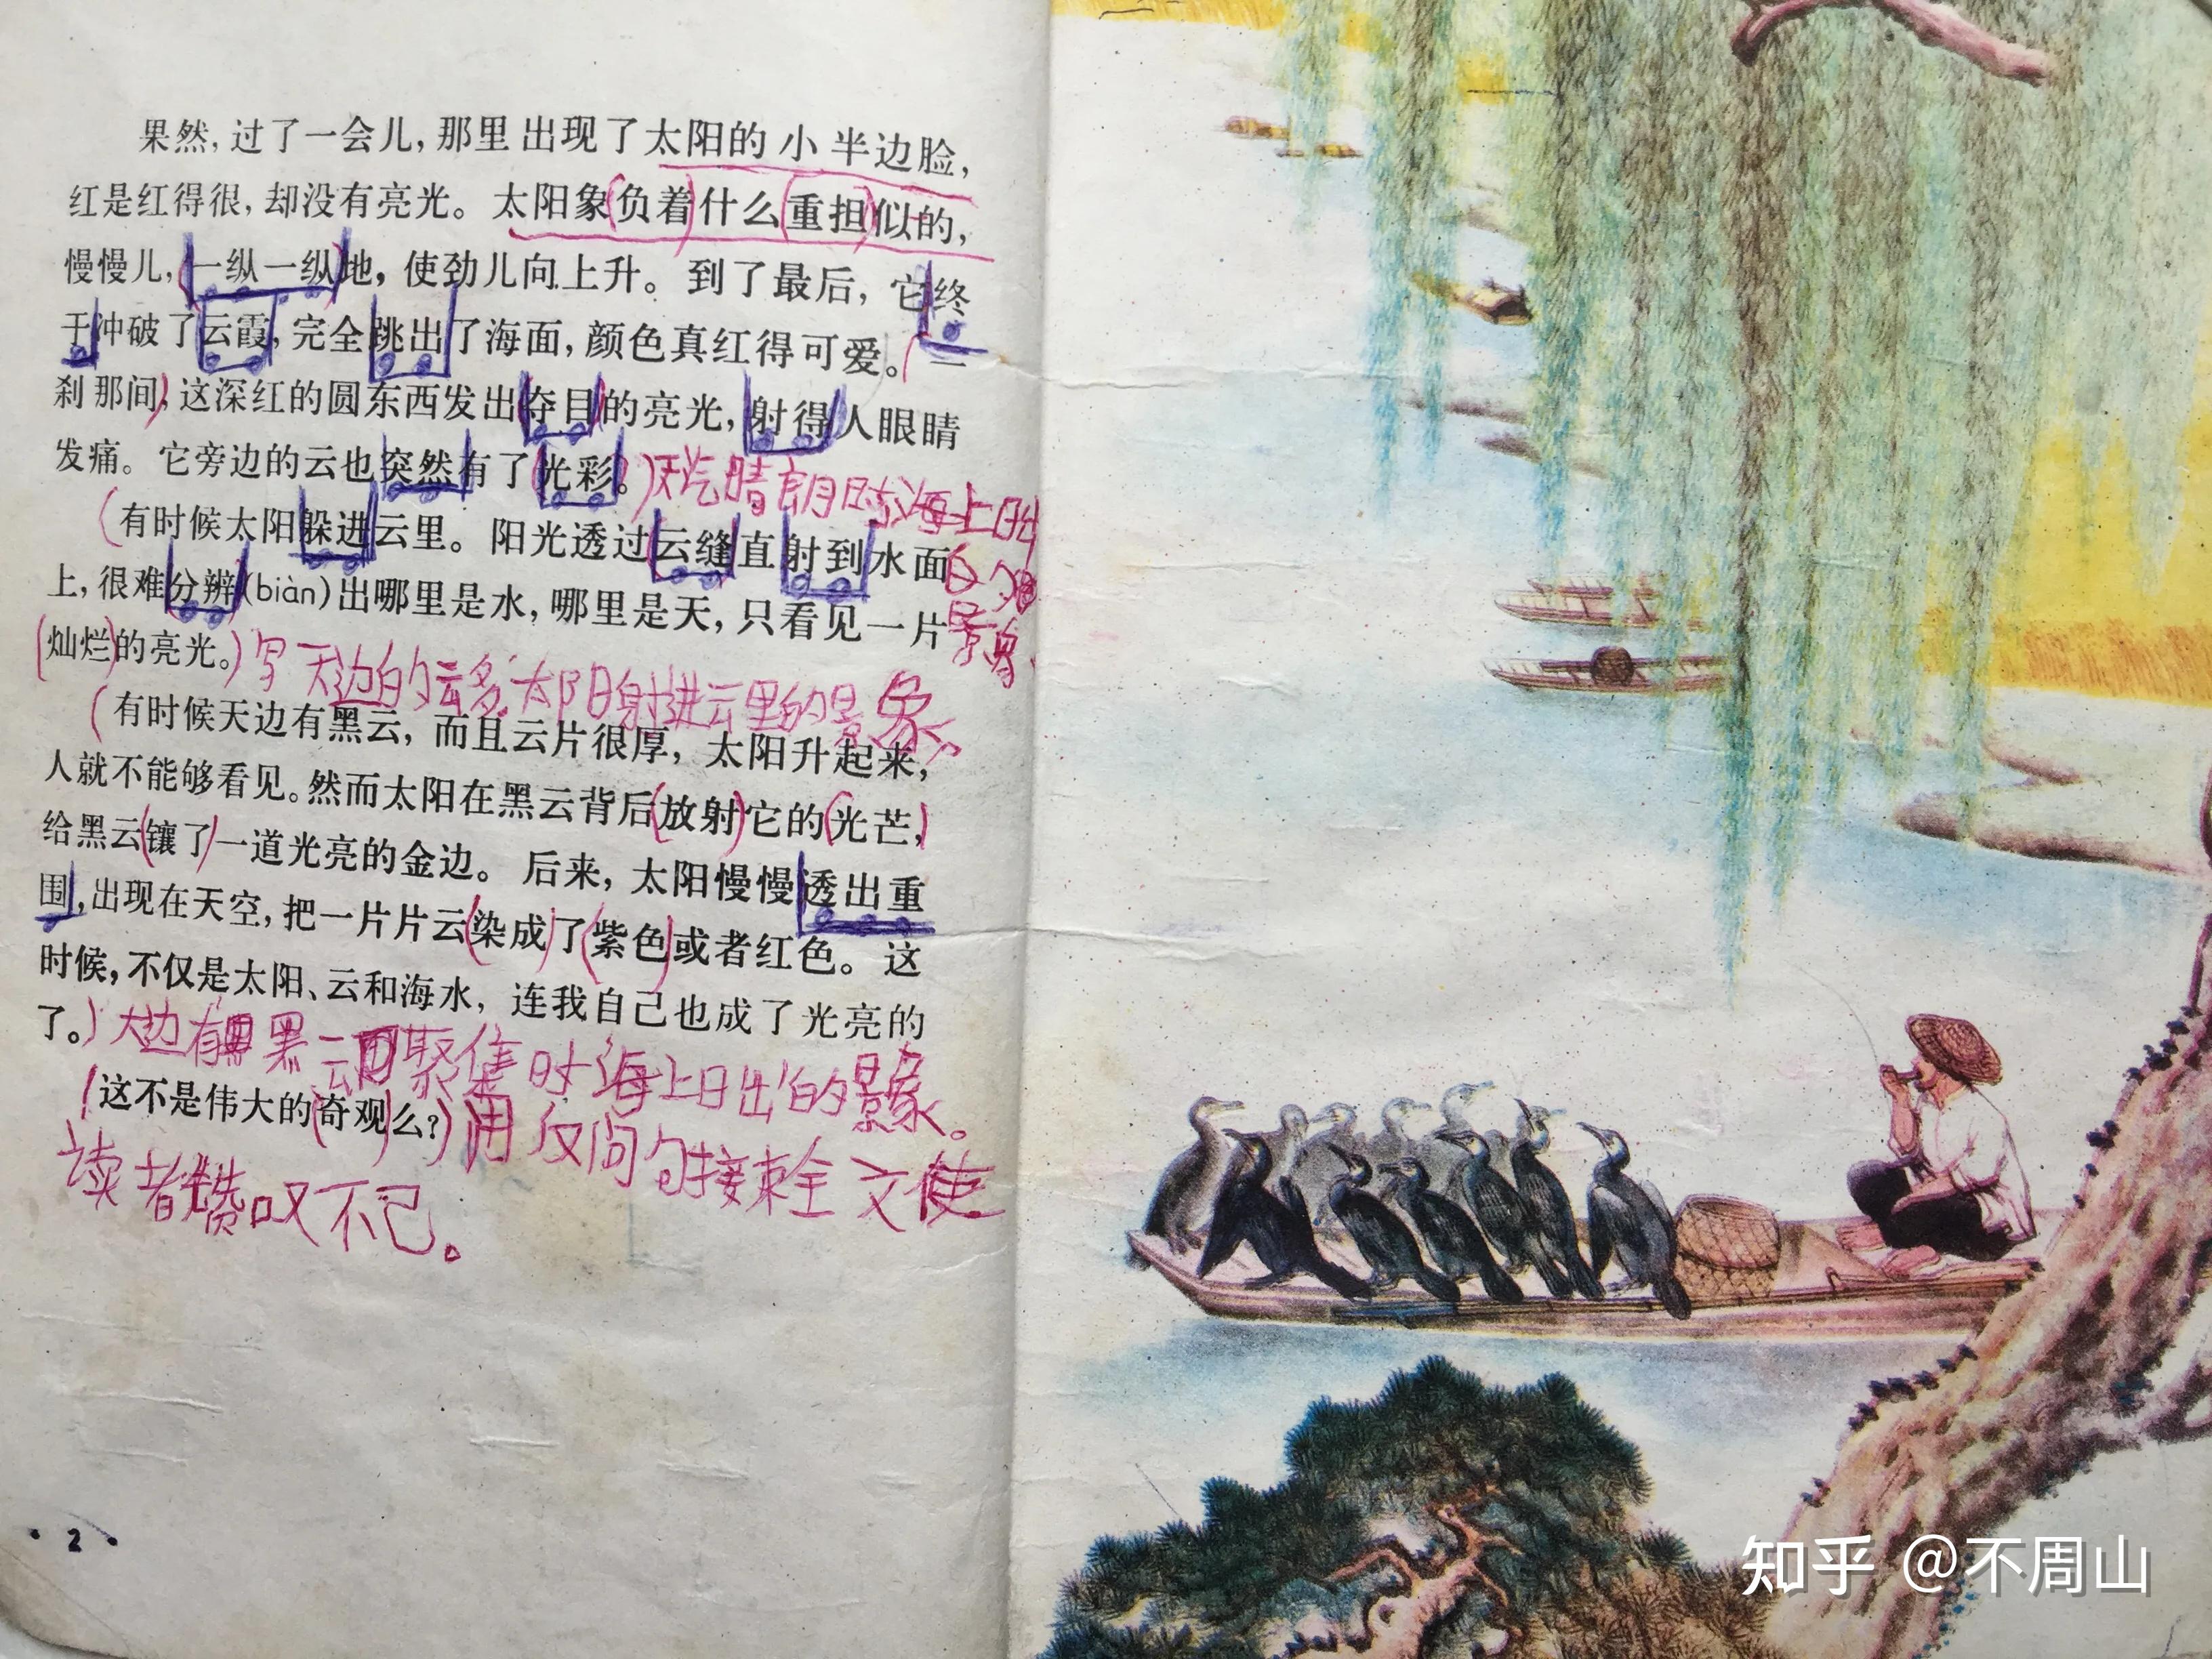 果然，过了一会儿，那里出现了太阳的小半边脸，
红是红得很，却没有亮光。太阳象负着什么重担似的，
慢慢儿，一纵一纵地，使劲儿向上升。到了最后，它终
于冲破了云霞，完全跳出了海面，颜色真红得可爱。一
刹那间，这深红的圆东西发出夺目的亮光，射得人眼睛
发痛。它旁边的云也突然有了光彩。
天气晴朗时海上日出
的
景象
有时候太阳躲进云里。阳光透过云缝直射到水面
上，很难分辨(biàn)出哪里是水，哪里是天，只看见一片
灿烂的亮光。
写天边的云多，太阳射进云里的景象
有时候天边有黑云，而且云片很厚，太阳升起来，
人就不能够看见。然而太阳在黑云背后放射它的光芒，
给黑云镶了一道光亮的金边。后来，太阳慢慢透出重
围，出现在天空，把一片片云染成了紫色或者红色。这
时候，不仅是太阳、云和海水，连我自己也成了光亮的
了。
天边有黑云聚集时海上日出的景象。
这不是伟大的奇观么？
用反问句接束全文使
读者赞叹不已。
·2·
知乎 @不周山